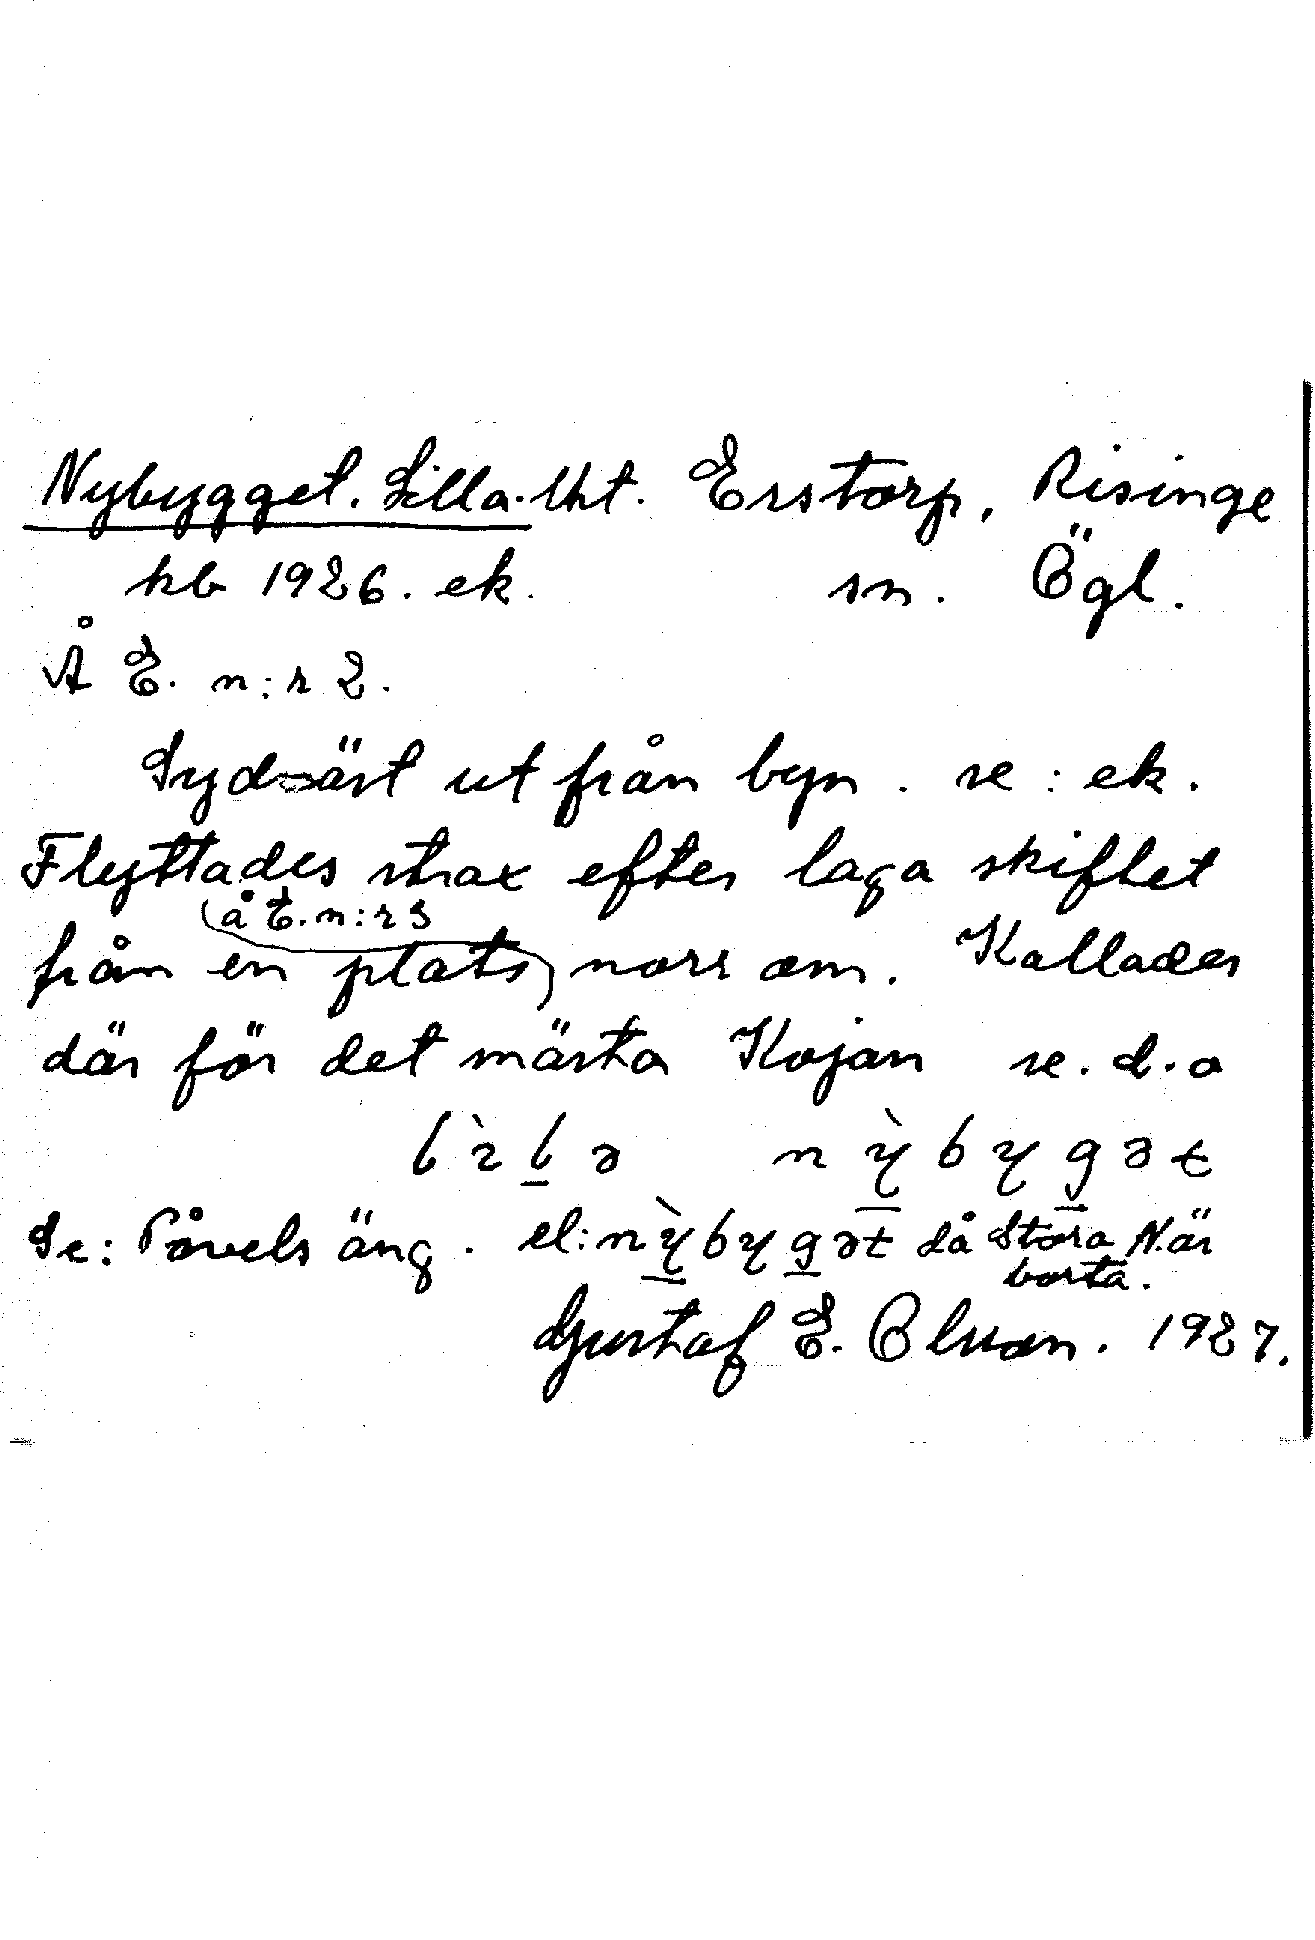 Nybygget. Lilla. lht. Erstorp, Risinge
hb 1926. ek. sn. Ögl.
Å E. n:r 2.
Sydväst ut från byn. se: ek.
Flyttades strax efter laga skiftet
å E. n:r 3
från en plats, norr om. Kallades
där för det mästa Kojan se. d. o
lìlə nỳbygət
Se: Påvels äng. el: nỳbygət då Stora N. är
borta.
Gustaf E. Olson. 1927.